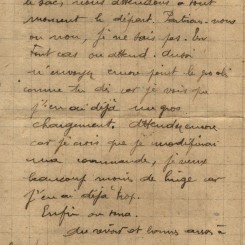 le sac, nous attendons à tout
moment le départ. Partirons-nous
ou non, je ne sais pas. En
tout cas on attend. Aussi
n'envoyez encore point le
comme tu dis car je vois que
j'en ai déjà un gros
chargement. Attendez encore
car je crois que je modifierai
ma commande, je veux
beaucoup moins de linge car
j'en ai déjà trop.
Enfin on
Au revoir et bonne à